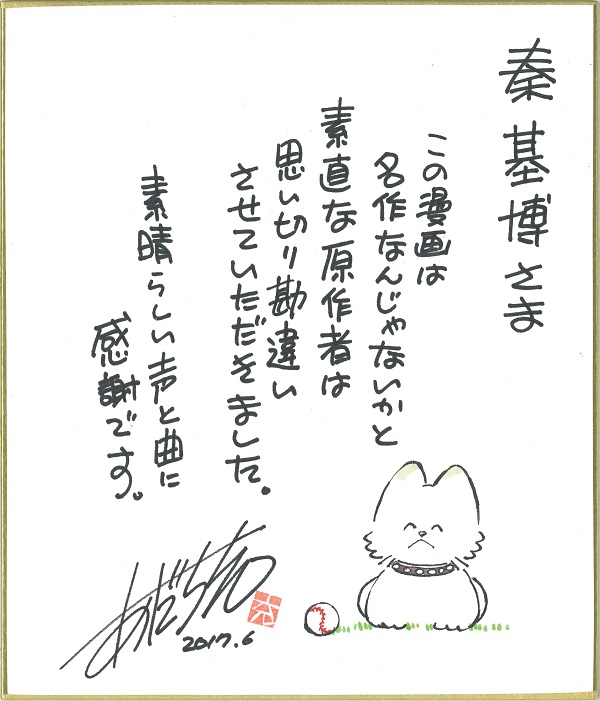 秦基博さま
この漫画は
名作なんじゃないかと
素直な原作者は
思い切り勘違い
させていただきました。
素晴らしい声と曲に
感謝です。
あだち充
2017.6